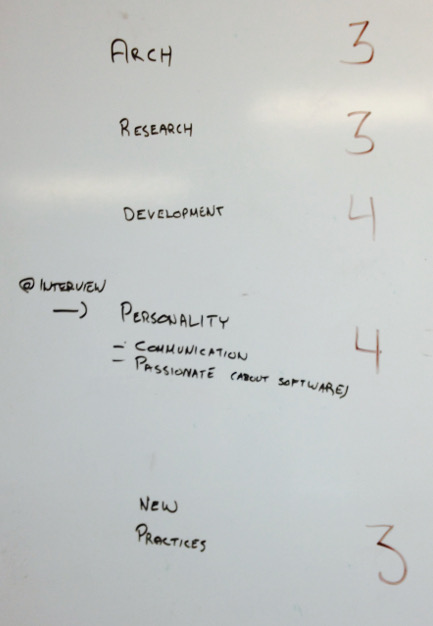 ARCH 3
RESEARCH 3
DEVELOPMENT 4
@ INTERVIEW
→ PERSONALITY 4
- COMMUNICATION
- PASSIONATE (ABOUT SOFTWARE)
NEW
PRACTICES 3